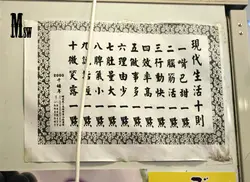 Msw
現代生活十則
一嘴巴甜一點
二腦筋活一點
三行動快一點
四效率高一點
五做事多一點
六理由少一點
七肚量大一點
八脾氣小一點
九 一點
十微笑露一點
2000
千禧年